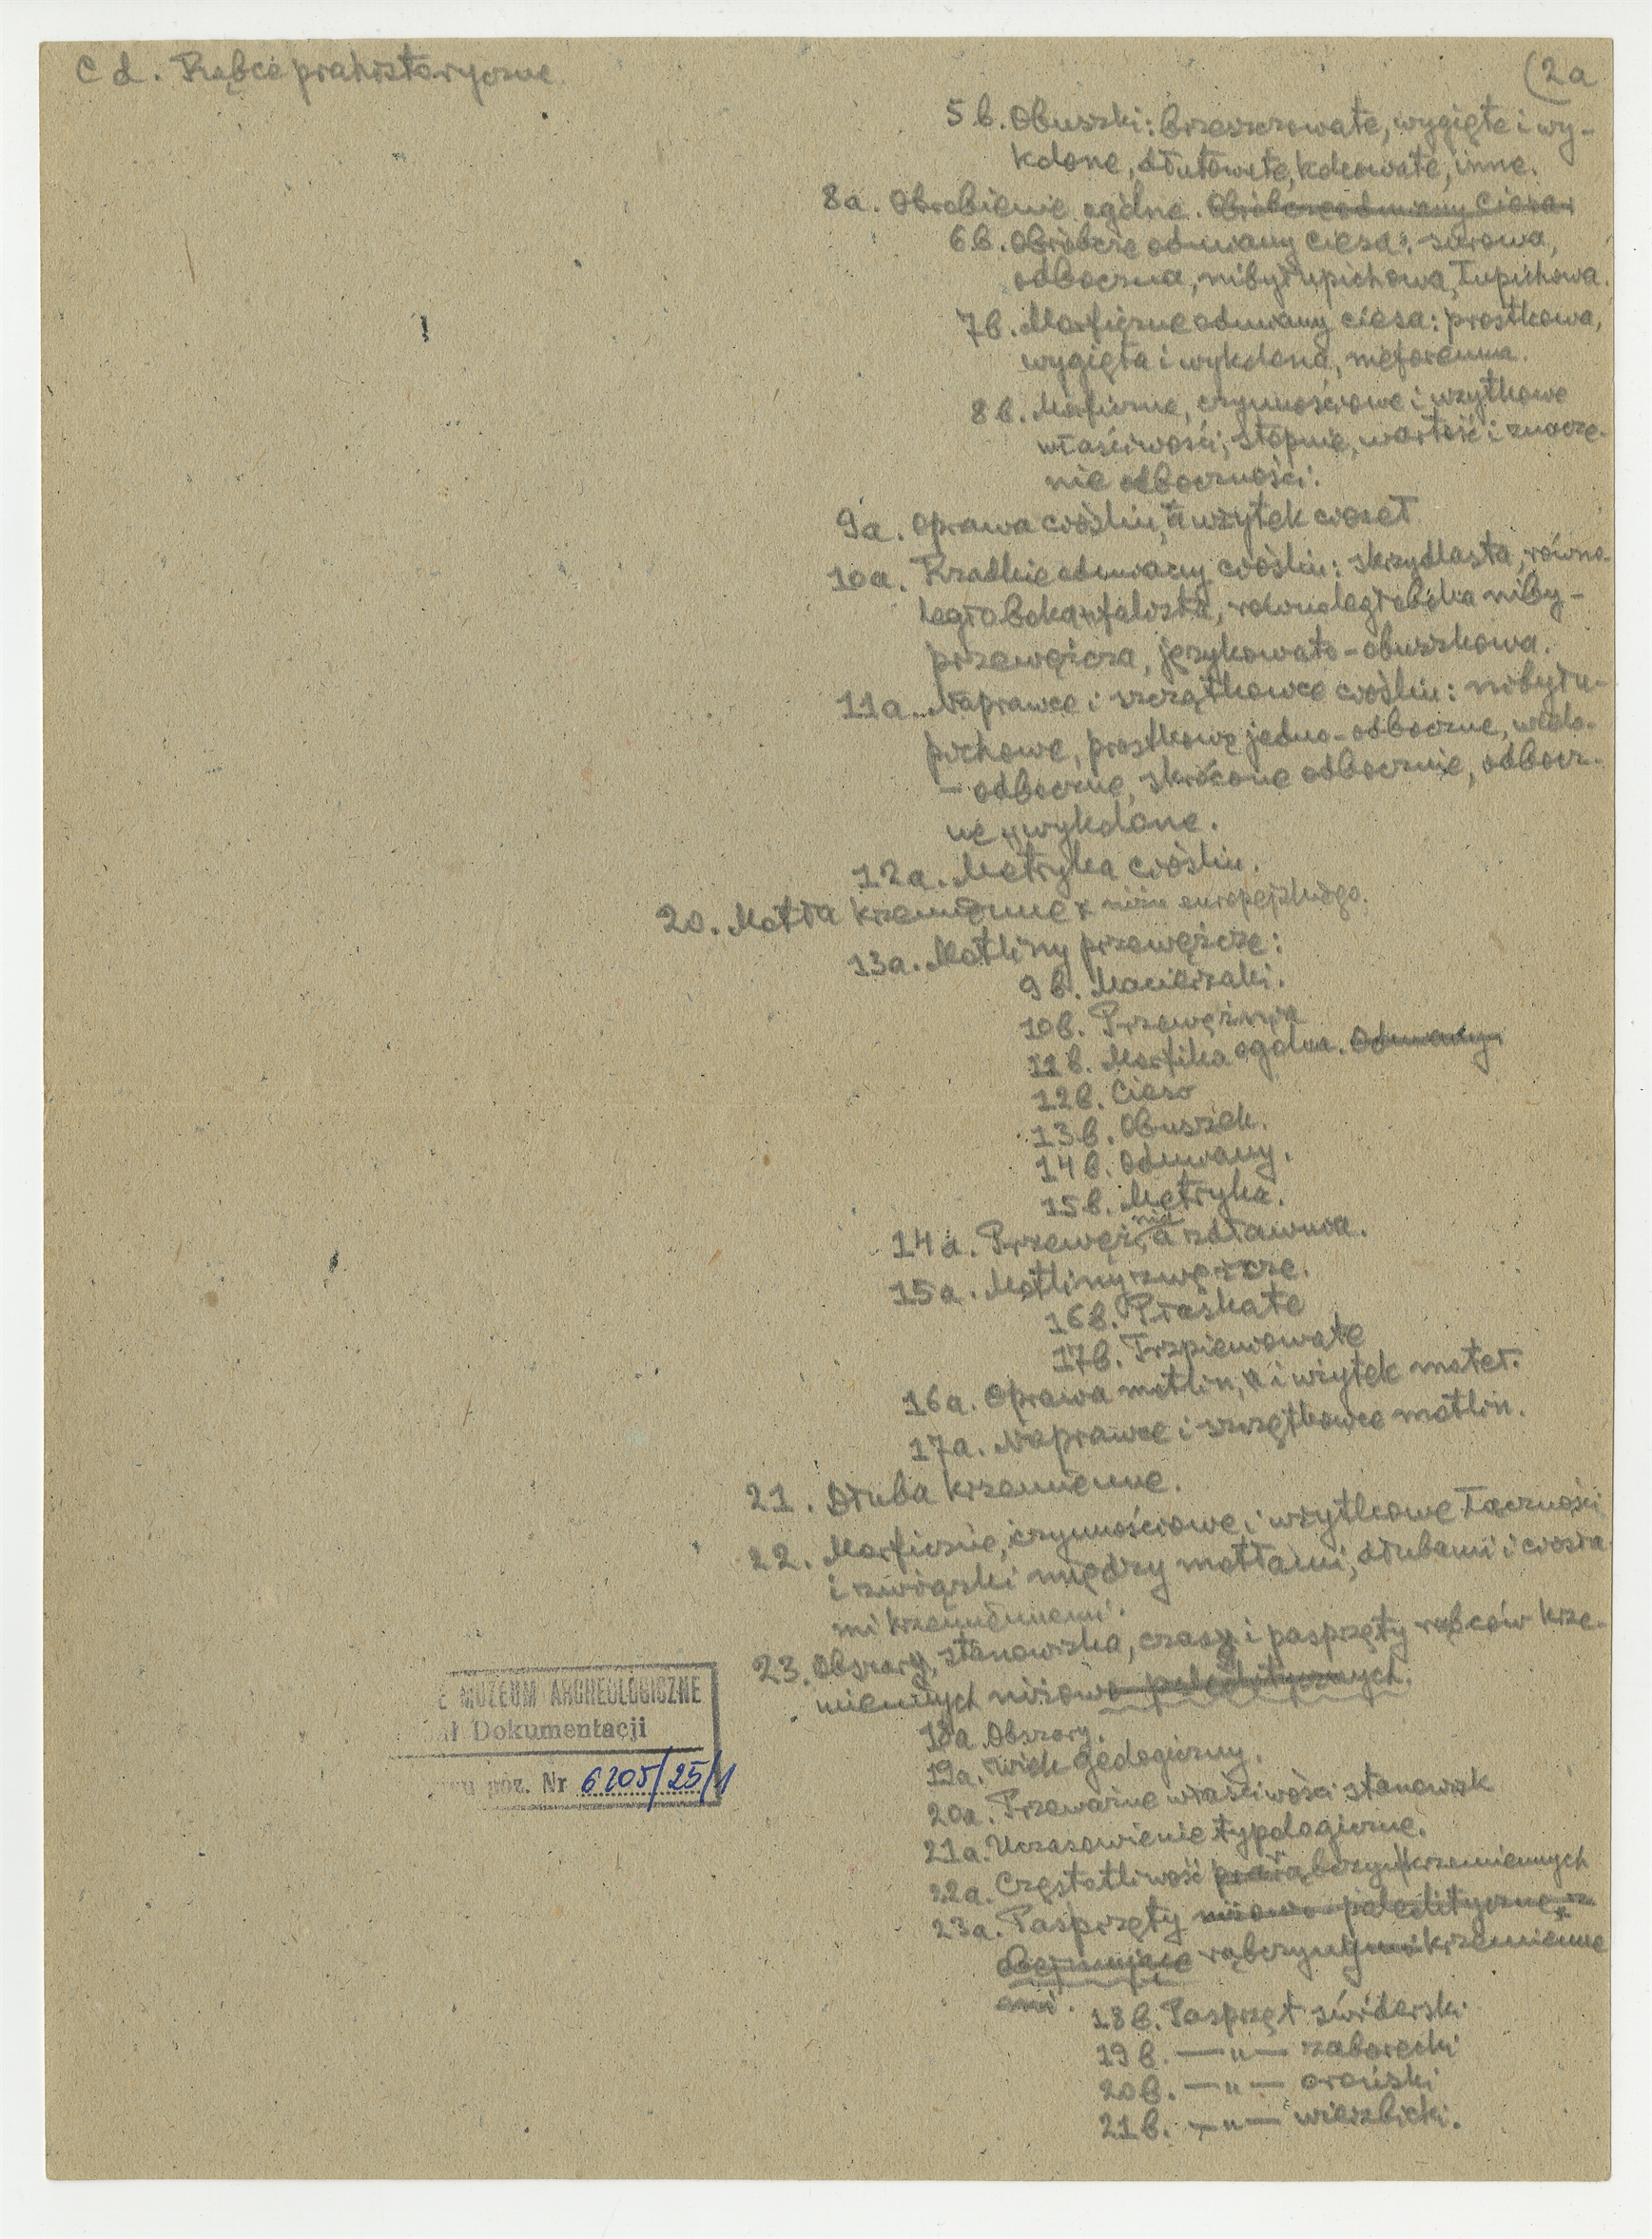 c d. Rębce prahistoryczne
(2a
5b. Obuszki: brzeszczowate, wygięte i wy-
kolone, dłutowate, kolcowate, inne.
8a. Obrobienie ogólne. Obróbcze odmiany ciosa:
6b. Obróbcze odmiany ciosa: surowa,
odboczna, nibyłupichowa, łupichowa.
7b. Morficzne odmiany ciosa: prostkowa,
wygięta i wykolona, nieforemna.
8b. Morficzne, czynnościowe i użytkowe
właściwości, stopnie, wartość i znacze-
nie odboczności.
9a. Oprawa cioślin, a użytek cioseł
10a. Rzadkie odmiany cioślin: skrzydlasta, równo-
ległoboka, równoległoboka niby-
przewęźcza, językowato-obuszkowa.
11a. Naprawce i szczątkowce cioślin: nibyłu-
pichowe, prostkowe jedno-odboczne, wielo-
-odboczne, skrócone odbocznie, odbocz-
ne wykolone.
12a. Metryka cioślin.
20. Motła krzemienne z niżu europejskiego.
13a. Motliny przewęźcze:
9b. Macierzaki.
10b. Przewęźnia
11b. Morfika ogólna. Odmiany.
12b. Cioso
13b. Obuszek.
14b. Odmiany.
15b. Metryka.
14a. Przewęźnia a zdławnia.
15a. Motliny zwęźcze.
16b. Płaskate
17b. Trzpieniowate
16a. Oprawa motlin, a i użytek moteł.
17a. Naprawce i szczątkowce motlin.
21. Dłuba krzemienne.
22. Morficzne, czynnościowe i użytkowe łączności
i związki między motłami, dłubami i ciosła-
mi krzemiennemi.
23. Obszary, stanowiska, czasy i pasprzęty rębców krze-
miennych niżowo-paleolitycznych.
18a. Obszary.
19a. Wiek geologiczny.
20a. Przeważne właściwości stanowisk
21a. Uczasowienie typologiczne.
22a. Częstotliwość rąbczyn krzemiennych
23a. Pasprzęty niżowo-paleolityczne z
obejmujące rąbczynymi krzemienne
emi.
18b. Pasprzęt świderski
19b. —„— zaborecki
20b. —„— oroński
21b. —„— wierzbicki.
E MUZEUM ARCHEOLOGICZNE
ał Dokumentacji
póz. Nr 6205/25/1